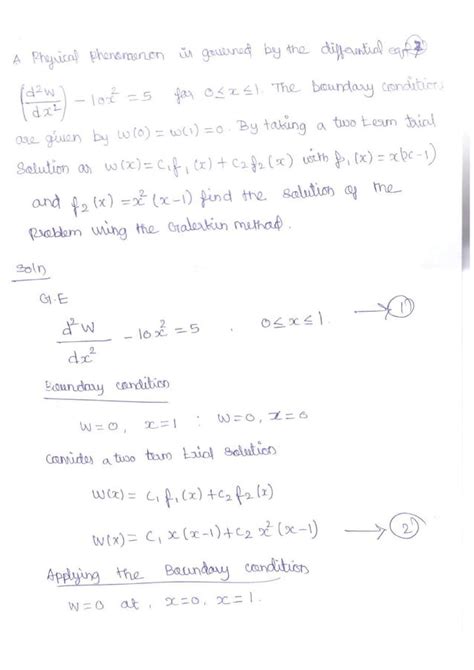 A Physical phenomenon is governed by the differential eqn
(d²w/dx²) - 10x² = 5 for 0≤x≤1. The boundary condition
are given by w(0) = w(1) = 0. By taking a two term trial
solution as w(x) = C₁f₁(x) + C₂f₂(x) with f₁(x) = x(x-1)
and f₂(x) = x²(x-1) find the solution of the
Problem using the Galerkin method.
Soln
G.E
d²w/dx² - 10x² = 5 . 0≤x≤1. → 1
Boundary condition
w=0, x=1 : w=0, x=0
Consider a two term trial solution
w(x) = C₁f₁(x) + C₂f₂(x)
w(x) = C₁ x(x-1) + C₂ x²(x-1) → 2
Applying the Boundary condition
w=0 at, x=0, x=1.